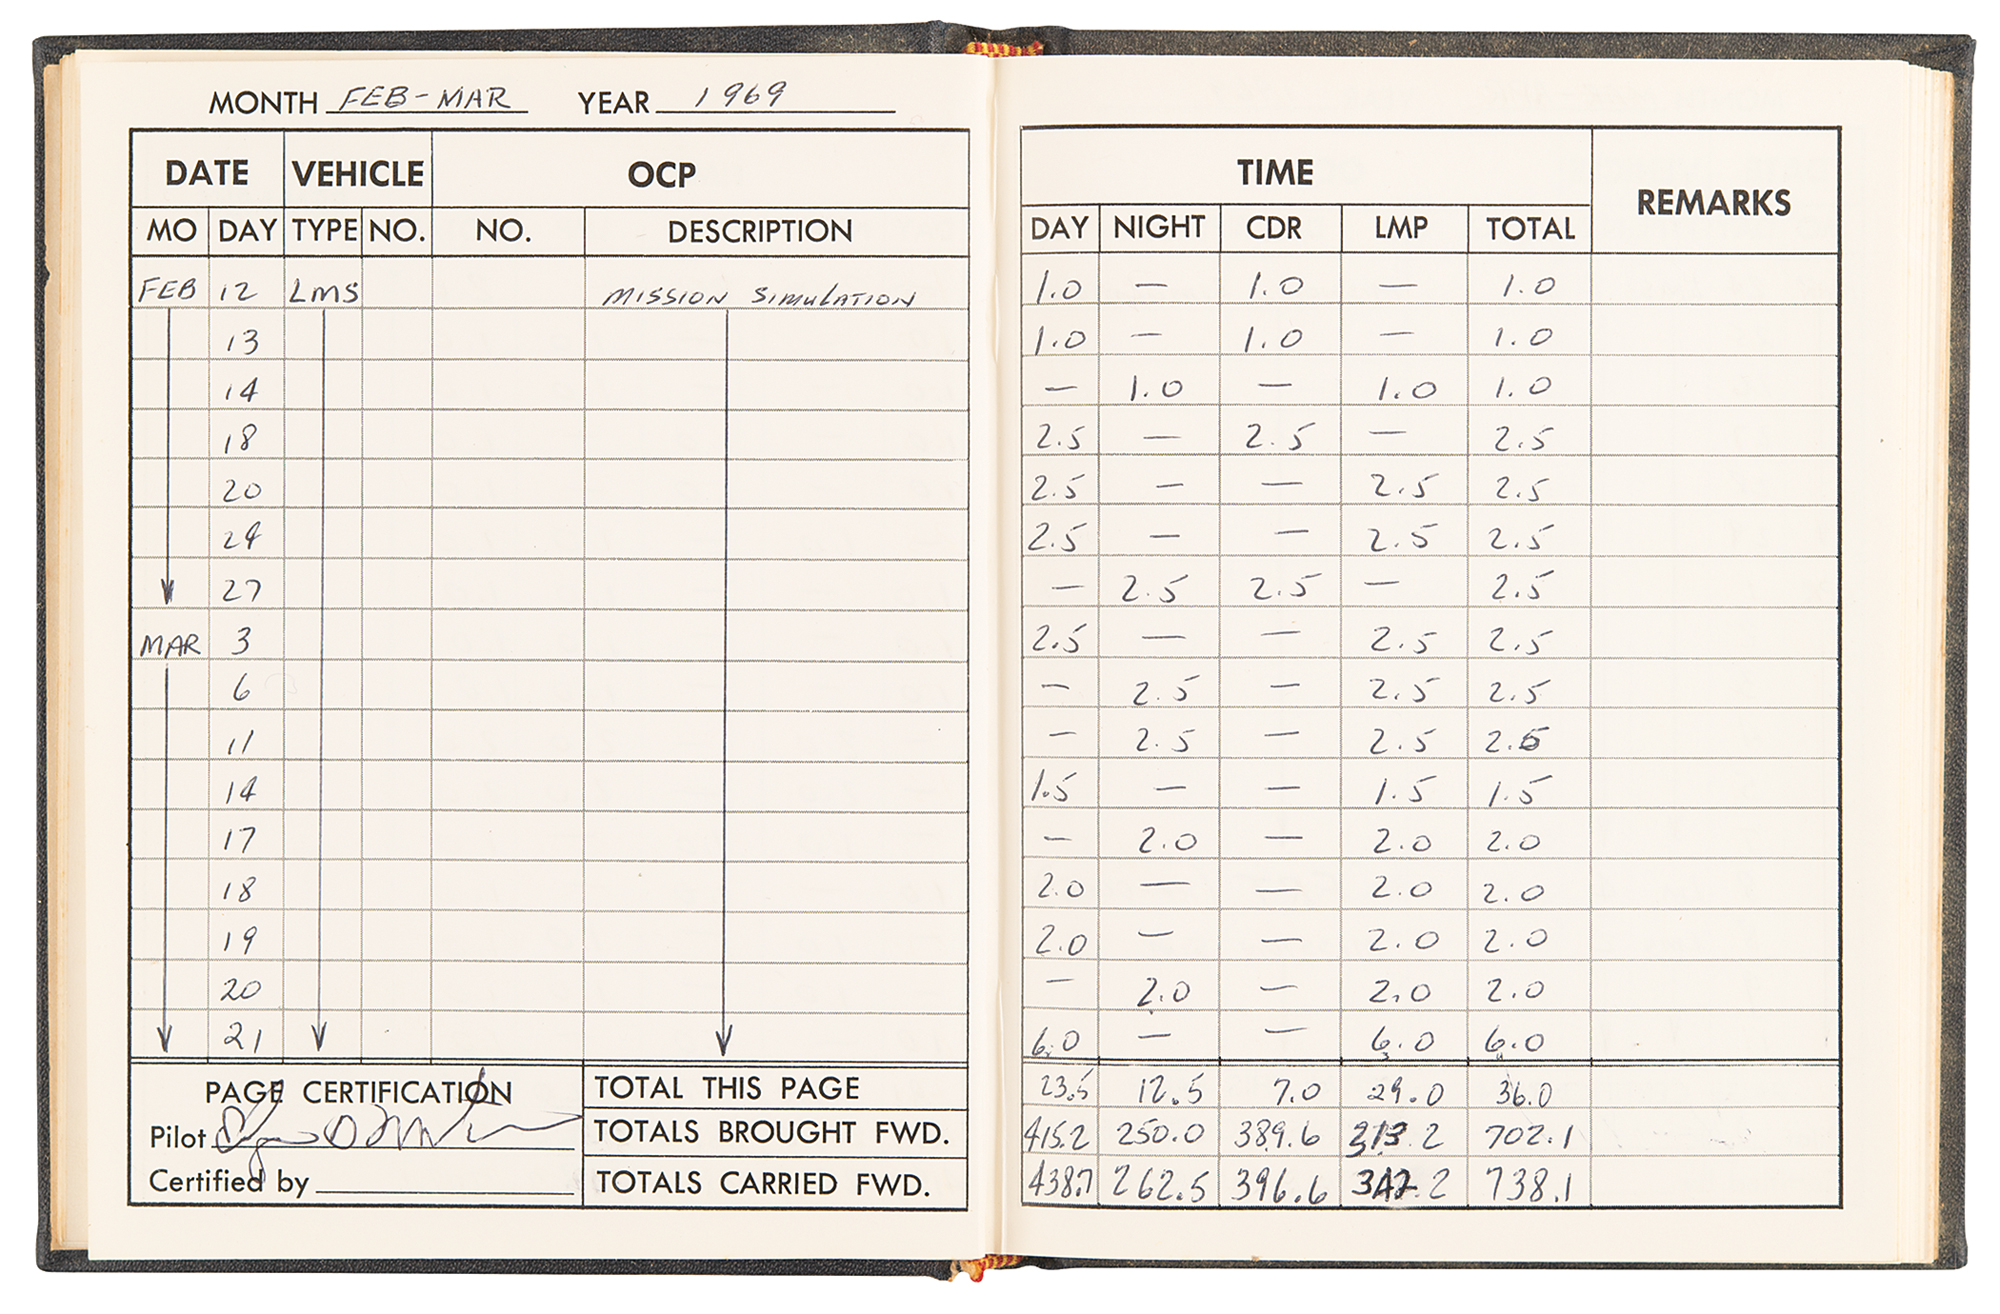 MONTH FEB-MAR YEAR 1969
DATE VEHICLE OCP TIME REMARKS
MO DAY TYPE NO. NO. DESCRIPTION DAY NIGHT CDR LMP TOTAL
FEB 12 LMS MISSION SIMULATION 1.0 — 1.0 — 1.0
13 1.0 — 1.0 — 1.0
14 — 1.0 — 1.0 1.0
18 2.5 — 2.5 — 2.5
20 2.5 — — 2.5 2.5
24 2.5 — — 2.5 2.5
27 — 2.5 2.5 — 2.5
MAR 3 2.5 — — 2.5 2.5
6 — 2.5 — 2.5 2.5
11 — 2.5 — 2.5 2.5
14 1.5 — — 1.5 1.5
17 — 2.0 — 2.0 2.0
18 2.0 — — 2.0 2.0
19 2.0 — — 2.0 2.0
20 — 2.0 — 2.0 2.0
21 6.0 — — 6.0 6.0
PAGE CERTIFICATION TOTAL THIS PAGE 23.5 12.5 7.0 29.0 36.0
Pilot TOTALS BROUGHT FWD. 415.2 250.0 389.6 313.2 702.1
Certified by TOTALS CARRIED FWD. 438.7 262.5 396.6 342.2 738.1